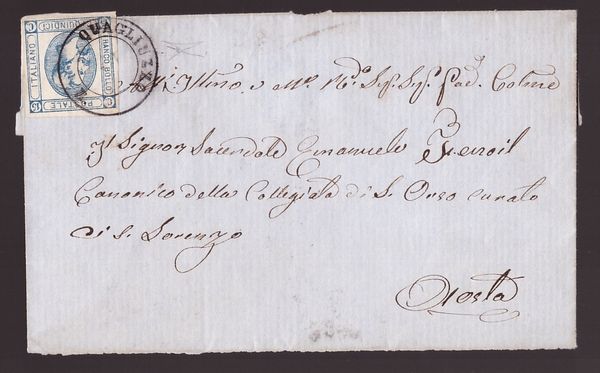 FRANCO BOLLO
C. QUINDICI
ITALIANO
POSTALE
C 15
QUAGLIUZZO
All' Illmo e M. Rdo Sig. Sig. Pad. Colmo
Il Signor Sacerdote Emanuele
Canonico della Collegiata di S. Orso curato
di S. Lorenzo
Aosta